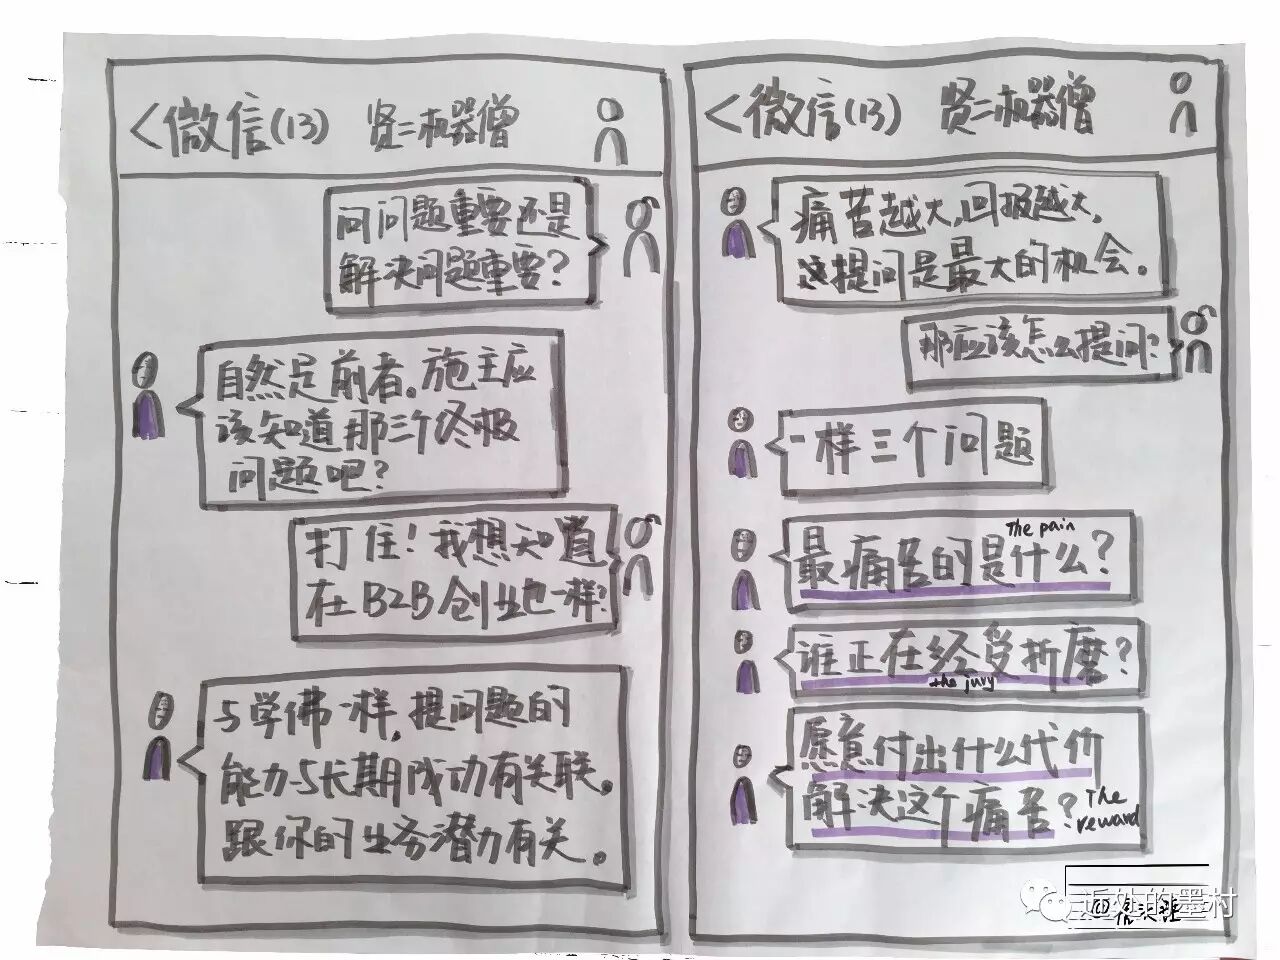 <微信(13) 贤二机器僧
问问题重要还是
解决问题重要?
自然是前者。施主应
该知道那三个终极
问题吧?
打住!我想知道
在B2B创业也一样?
与学佛一样,提问题的
能力与长期成功有关联。
跟你的业务潜力有关。
<微信(13) 贤二机器僧
痛苦越大,回报越大,
这提问是最大的机会。
那应该怎么提问?
一样三个问题
The pain
最痛苦的是什么?
谁正在经受折磨?
the jury
愿意付出什么代价
解决这个痛苦?
The
reward
近处的墨村